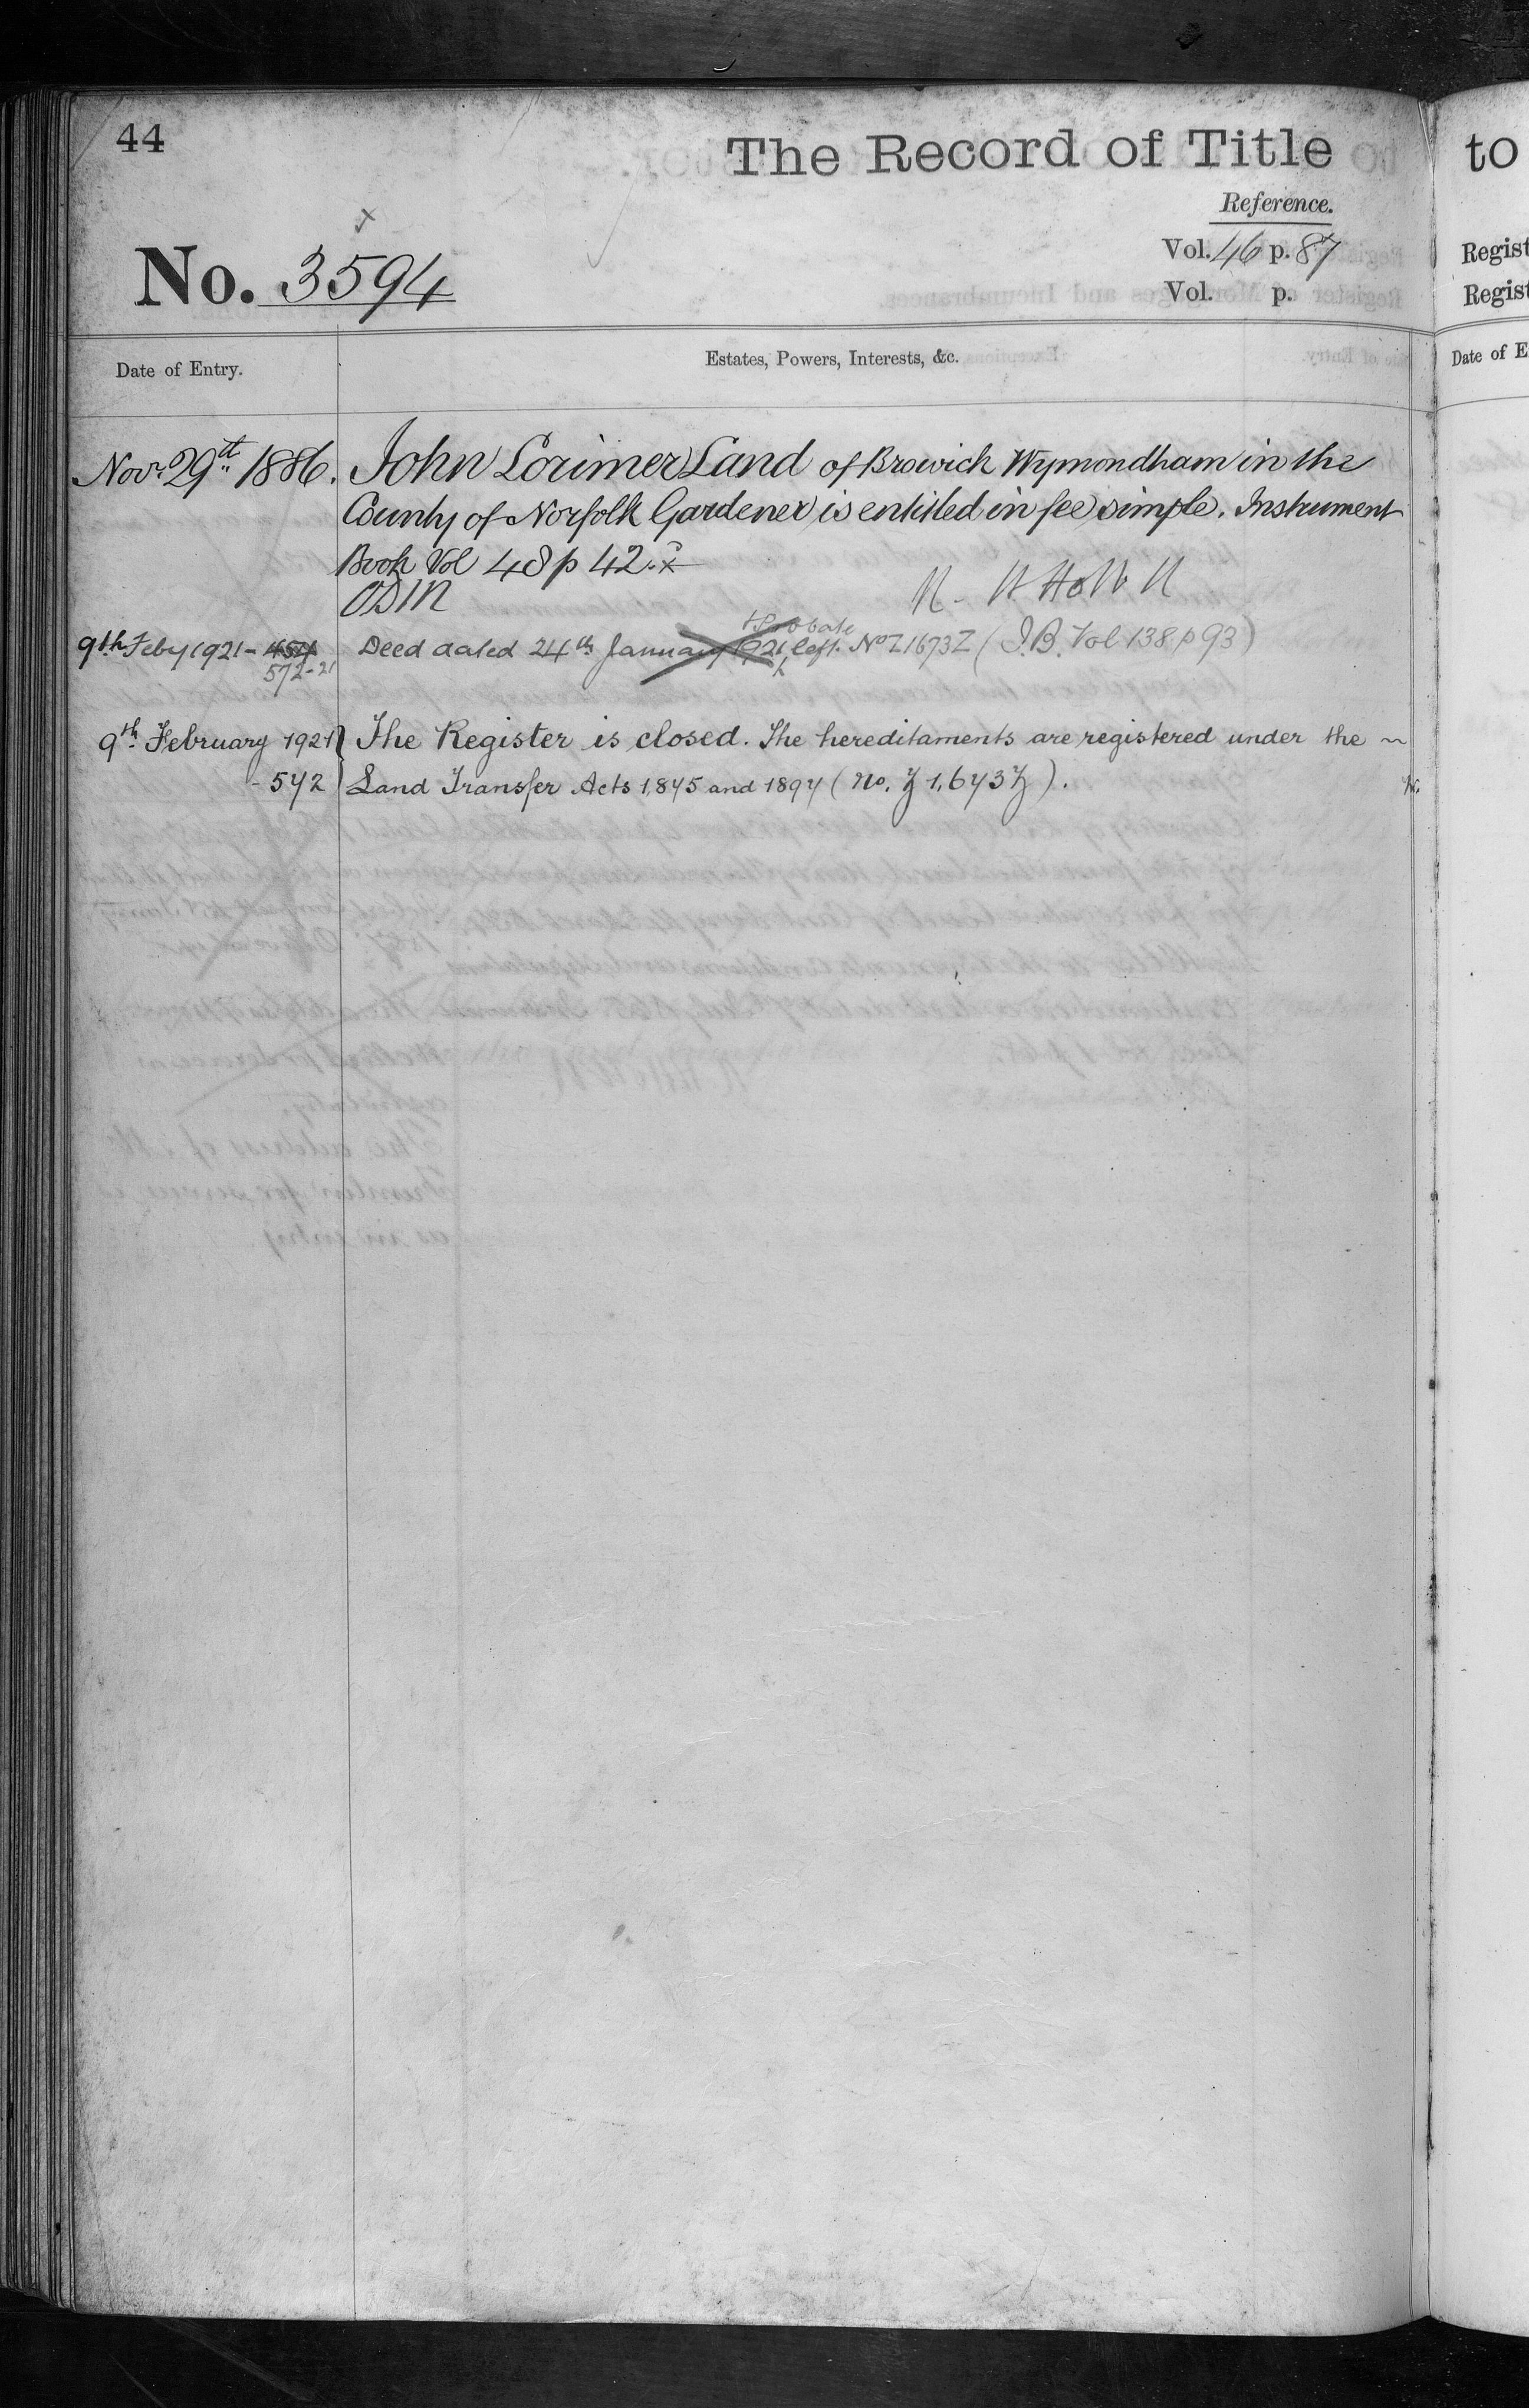 44
The Record of Title
Reference.
No. 3594
Vol. 46 p. 87
Vol. p.
Date of Entry.
Estates, Powers, Interests, &c.
Nov. 29th 1886. John Lorimer Land of Browick Wymondham in the
County of Norfolk Gardener is entitled in fee simple. Instrument
Book Vol 48 p 42.
+Probate
9th Feby 1921 - 454 Deed dated 24th January 1921 left. No Z1673Z (I.B. Vol 138 p 93)
572-21
9th February 1921 The Register is closed. The hereditaments are registered under the
- 572 Land Transfer Acts 1,875 and 1897 (No. Z 1,673Z).
to
Regist
Regist
Date of E